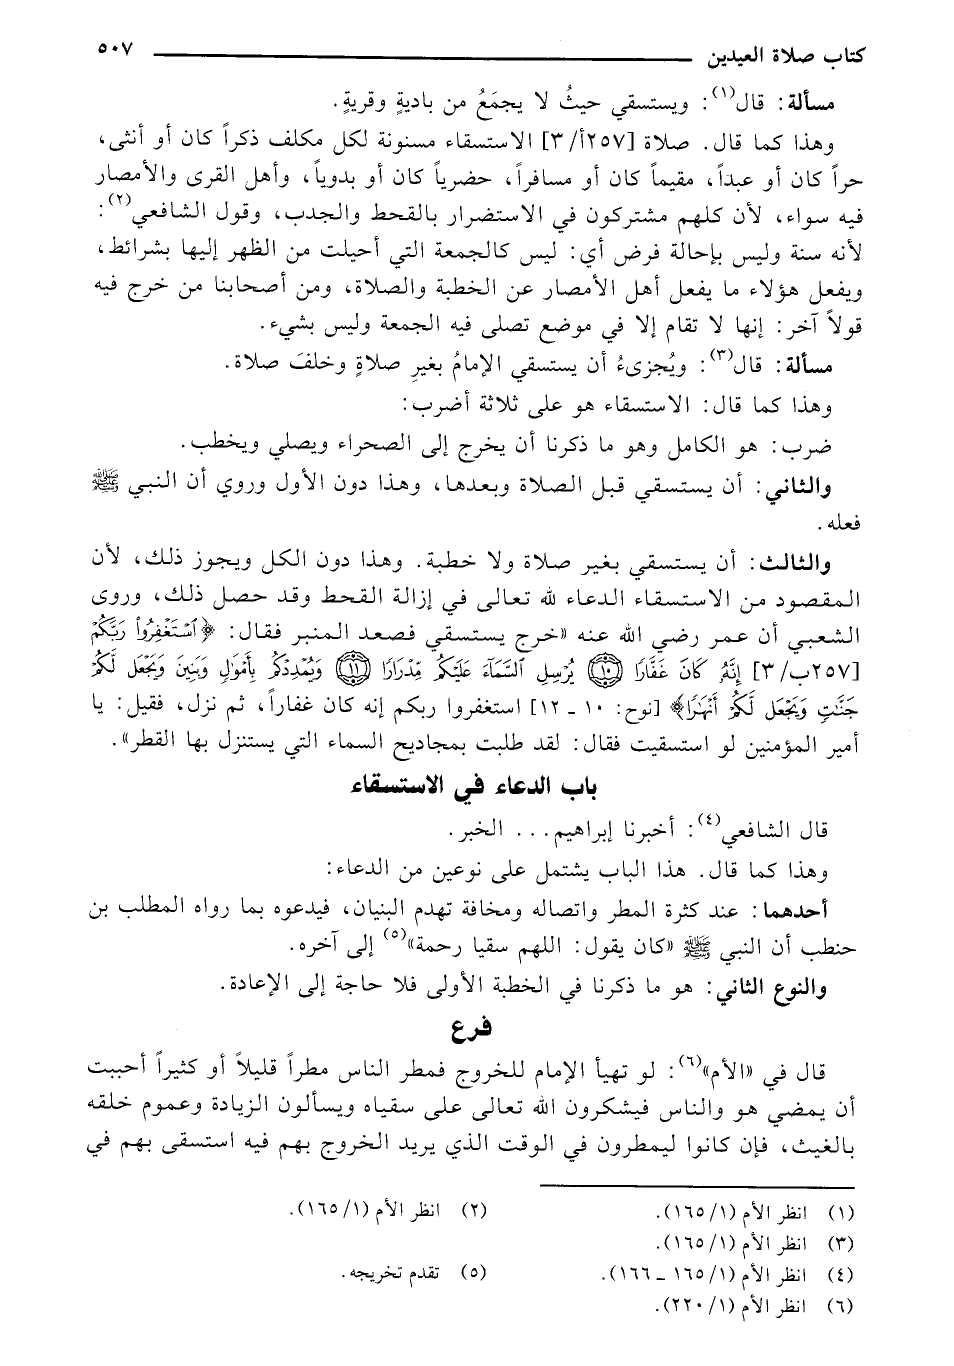 كتاب صلاة العيدين ٥٠٧
مسألة: قال(١): ويستسقي حيثُ لا يجمَعُ من باديةٍ وقريةٍ.
وهذا كما قال. صلاة [٢٥٧أ/ ٣] الاستسقاء مسنونة لكل مكلف ذكراً كان أو أنثى،
حراً كان أو عبداً، مقيماً كان أو مسافراً، حضرياً كان أو بدوياً، وأهل القرى والأمصار
فيه سواء، لأن كلهم مشتركون في الاستضرار بالقحط والجدب، وقول الشافعي(٢):
لأنه سنة وليس بإحالة فرض أي: ليس كالجمعة التي أحيلت من الظهر إليها بشرائط،
ويفعل هؤلاء ما يفعل أهل الأمصار عن الخطبة والصلاة، ومن أصحابنا من خرج فيه
قولاً آخر: إنها لا تقام إلا في موضع تصلى فيه الجمعة وليس بشيء.
مسألة: قال(٣): ويُجزىءُ أن يستسقي الإمامُ بغيرِ صلاةٍ وخلفَ صلاة.
وهذا كما قال: الاستسقاء هو على ثلاثة أضرب:
ضرب: هو الكامل وهو ما ذكرنا أن يخرج إلى الصحراء ويصلي ويخطب.
والثاني: أن يستسقي قبل الصلاة وبعدها، وهذا دون الأول وروي أن النبي ﷺ
فعله.
والثالث: أن يستسقي بغير صلاة ولا خطبة. وهذا دون الكل ويجوز ذلك، لأن
المقصود من الاستسقاء الدعاء لله تعالى في إزالة القحط وقد حصل ذلك، وروى
الشعبي أن عمر رضي الله عنه «خرج يستسقي فصعد المنبر فقال: ﴿ٱسْتَغْفِرُوا۟ رَبَّكُمْ
[٢٥٧ب/ ٣] إِنَّهُۥ كَانَ غَفَّارًا ⑩ يُرْسِلِ ٱلسَّمَآءَ عَلَيْكُم مِّدْرَارًا ⑪ وَيُمْدِدْكُم بِأَمْوَٰلٍ وَبَنِينَ وَيَجْعَل لَّكُمْ
جَنَّٰتٍ وَيَجْعَل لَّكُمْ أَنْهَٰرًا﴾ [نوح: ١٠ ـ ١٢] استغفروا ربكم إنه كان غفاراً، ثم نزل، فقيل: يا
أمير المؤمنين لو استسقيت فقال: لقد طلبت بمجاديح السماء التي يستنزل بها القطر».
باب الدعاء في الاستسقاء
قال الشافعي(٤): أخبرنا إبراهيم... الخبر.
وهذا كما قال. هذا الباب يشتمل على نوعين من الدعاء:
أحدهما: عند كثرة المطر واتصاله ومخافة تهدم البنيان، فيدعوه بما رواه المطلب بن
حنطب أن النبي ﷺ «كان يقول: اللهم سقيا رحمة»(٥) إلى آخره.
والنوع الثاني: هو ما ذكرنا في الخطبة الأولى فلا حاجة إلى الإعادة.
فرع
قال في «الأم»(٦): لو تهيأ الإمام للخروج فمطر الناس مطراً قليلاً أو كثيراً أحببت
أن يمضي هو والناس فيشكرون الله تعالى على سقياه ويسألون الزيادة وعموم خلقه
بالغيث، فإن كانوا ليمطرون في الوقت الذي يريد الخروج بهم فيه استسقى بهم في
(١) انظر الأم (١/ ١٦٥). (٢) انظر الأم (١/ ١٦٥).
(٣) انظر الأم (١/ ١٦٥).
(٤) انظر الأم (١/ ١٦٥ ـ ١٦٦). (٥) تقدم تخريجه.
(٦) انظر الأم (١/ ٢٢٠).